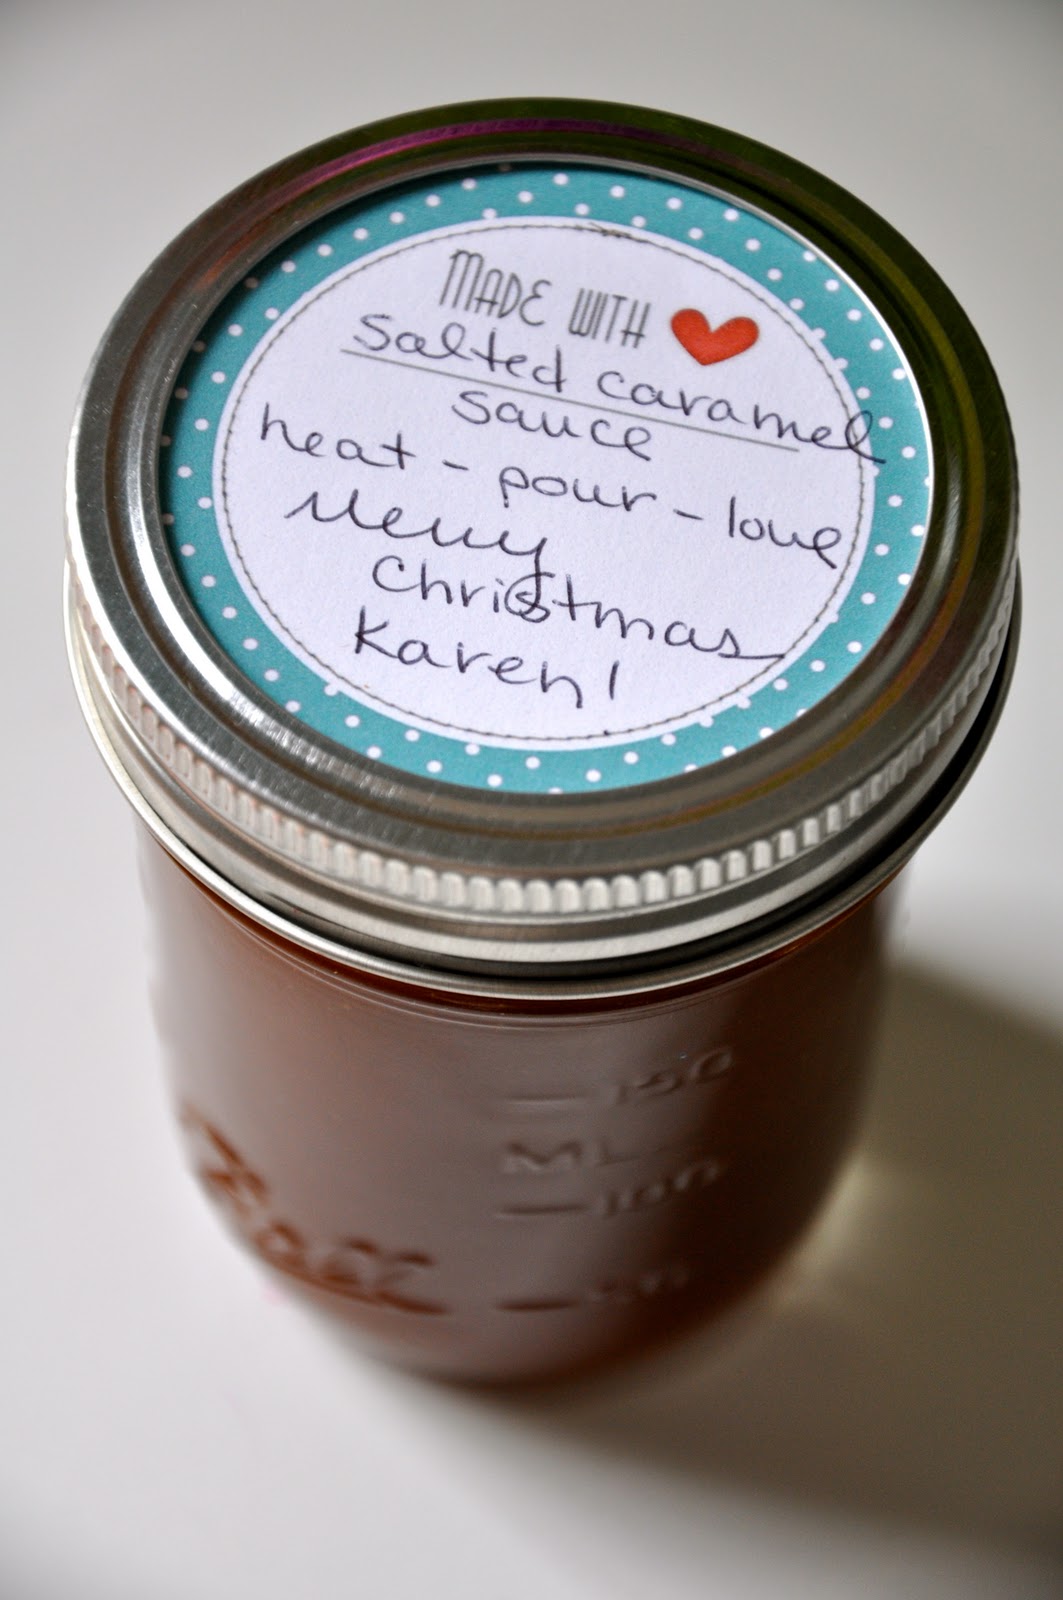 MADE WITH
salted caramel
sauce
heat - pour - love
Merry
Christmas
Karen!
150
ML
100
50
Ball